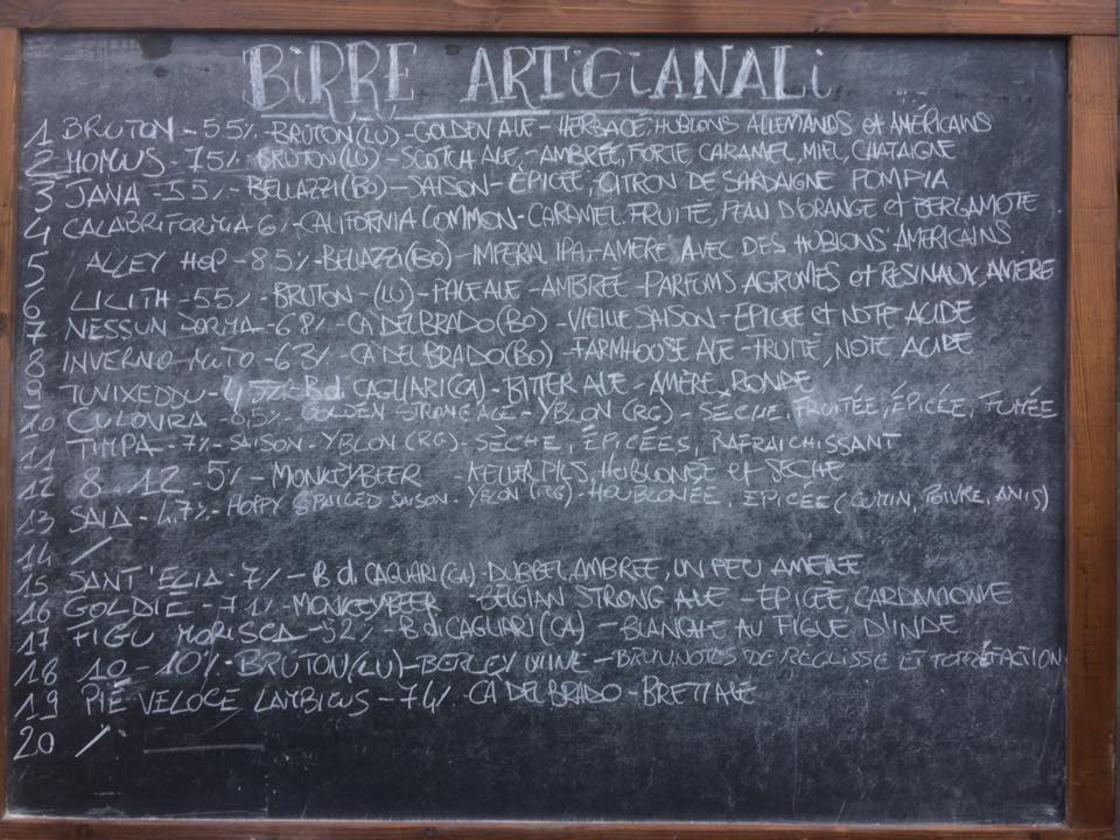 BiRRE ARTiGiANALi
1 BRUTON - 5 5% - BRUTON (LU) - GOLDEN ALE - HERBACÉ, HUBLONS ALLEMANDS et AMÉRICAINS
2 MOMUS - 7 5% - BRUTON (LU) - SCOTCH ALE, - AMBRÉE, FORTE, CARAMEL, MIEL, CHATAIGNE
3 JANA - 5 5% - BELLAZZI (BO) - SAISON - EPICÉE, CITRON DE SARDAIGNE POMPIA
4 CALABRIFORNIA 6% - CALIFORNIA COMMON - CARAMEL FRUITÉ, PEAU D'ORANGE et BERGAMOTE
5 ALLEY HOP - 8 5% - BELLAZZI (BO) - IMPERIAL IPA - AMERE AVEC DES HUBLONS AMERICAINS
6 LILITH - 5 5% - BRUTON - (LU) - PALE ALE - AMBRÉE - PARFUMS AGRUMÉS et RESINAUX, AMERE
7 NESSUN DORMA - 6 8% - CA DEL BRADO (BO) - VIEILLE SAISON - EPICEE et NOTE ACIDE
8 INVERNO MUTO - 6 3% - CA' DEL BRADO (BO) - FARMHOUSE ALE - FRUITÉ, NOTE ACIDE
9 TUVIXEDDU - 4,5% - B. di CAGLIARI (CA) - BITTER ALE - AMÈRE, RONDE
10 CULOVRA 8,5% - GOLDEN STRONG ALE - YBLON (RG) - SÈCHE, FRUITÉE, ÉPICÉE, FUMÉE
11 TIMPA - 7% - SAISON - YBLON (RG) - SÈCHE, ÉPICÉES, RAFRAICHISSANT
12 8 12 - 5% - MONKEYBEER - KELLER PILS, HOUBLONÉE et SÈCHE
13 SAIA - 4,7% - HOPPY SPAICED SAISON - YBLON (RG) - HOUBLONÉE, EPICÉE (CUMIN, POIVRE, ANIS)
14 /
15 SANT'ELIA - 7% - B di CAGLIARI (CA) - DUBBEL, AMBREE, UN PEU AMERE
16 GOLDIE - 7 1% - MONKEYBEER - BELGIAN STRONG ALE - EPICÉE, CARDAMOME
17 FIGU MORISCA - 5 2% - B di CAGLIARI (CA) - BLANCHE AU FIGUE D'INDE
18 10 - 10% - BRUTON (LU) - BERLEY WINE - BRUN, NOTES DE REGLISSE ET TORRÉFACTION
19 PIÉ VELOCE LAMBICUS - 7 4% - CA' DEL BRADO - BRETT ALE
20 /